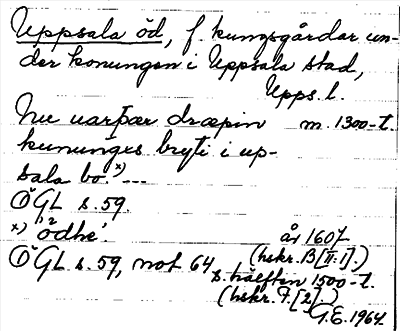 Uppsala öd, f. kungsgårdar un-
der konungen i Uppsala stad,
Upps. l.
Nu uarþær dræpin m. 1300-t.
kununges bryti i up-
sala bo. x) ---
ÖGL s. 59.
x) 'ödhe'. år 1607
(hskr. B [II:1].)
ÖGL s. 59, not 64 s. hälften 1500-t.
(hskr. F. [2].)
G.E. 1964.